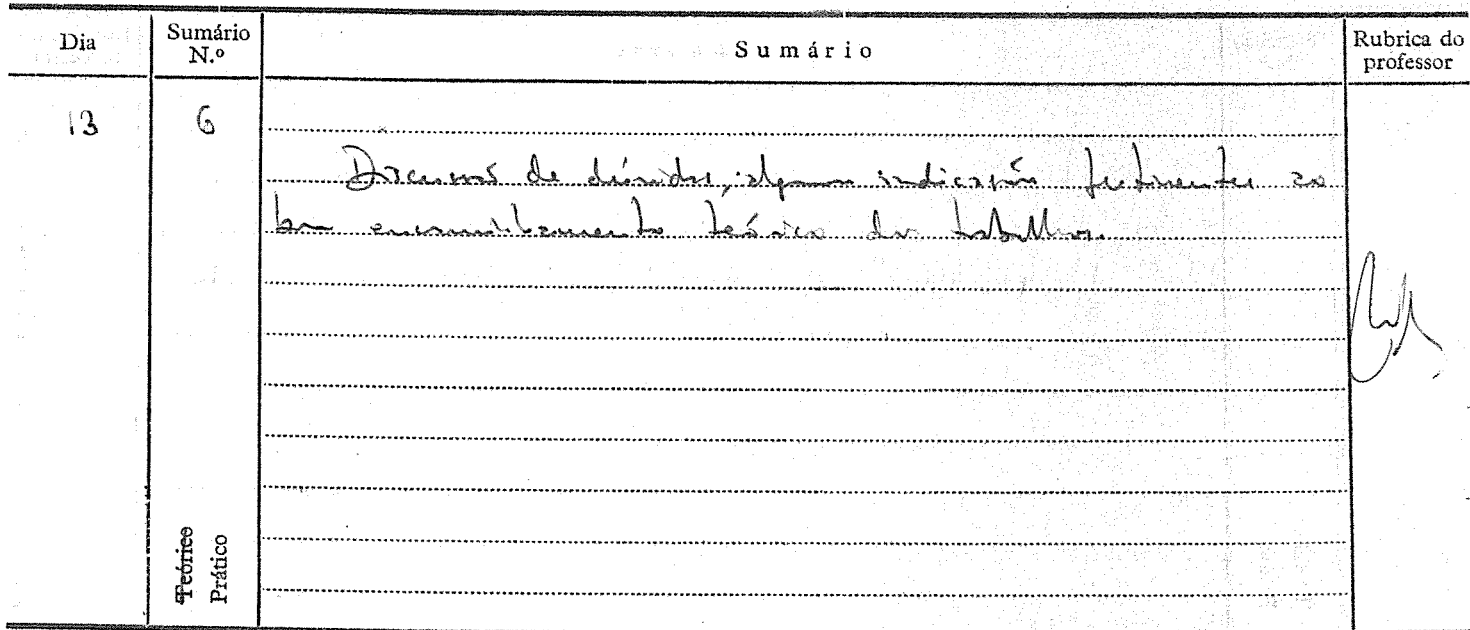 Dia
Sumário N.º
Sumário
Rubrica do professor
13
6
Discussão de dúvidas, algumas indicações pertinentes ao
bom encaminhamento teórico dos trabalhos.
Teórico
Prático